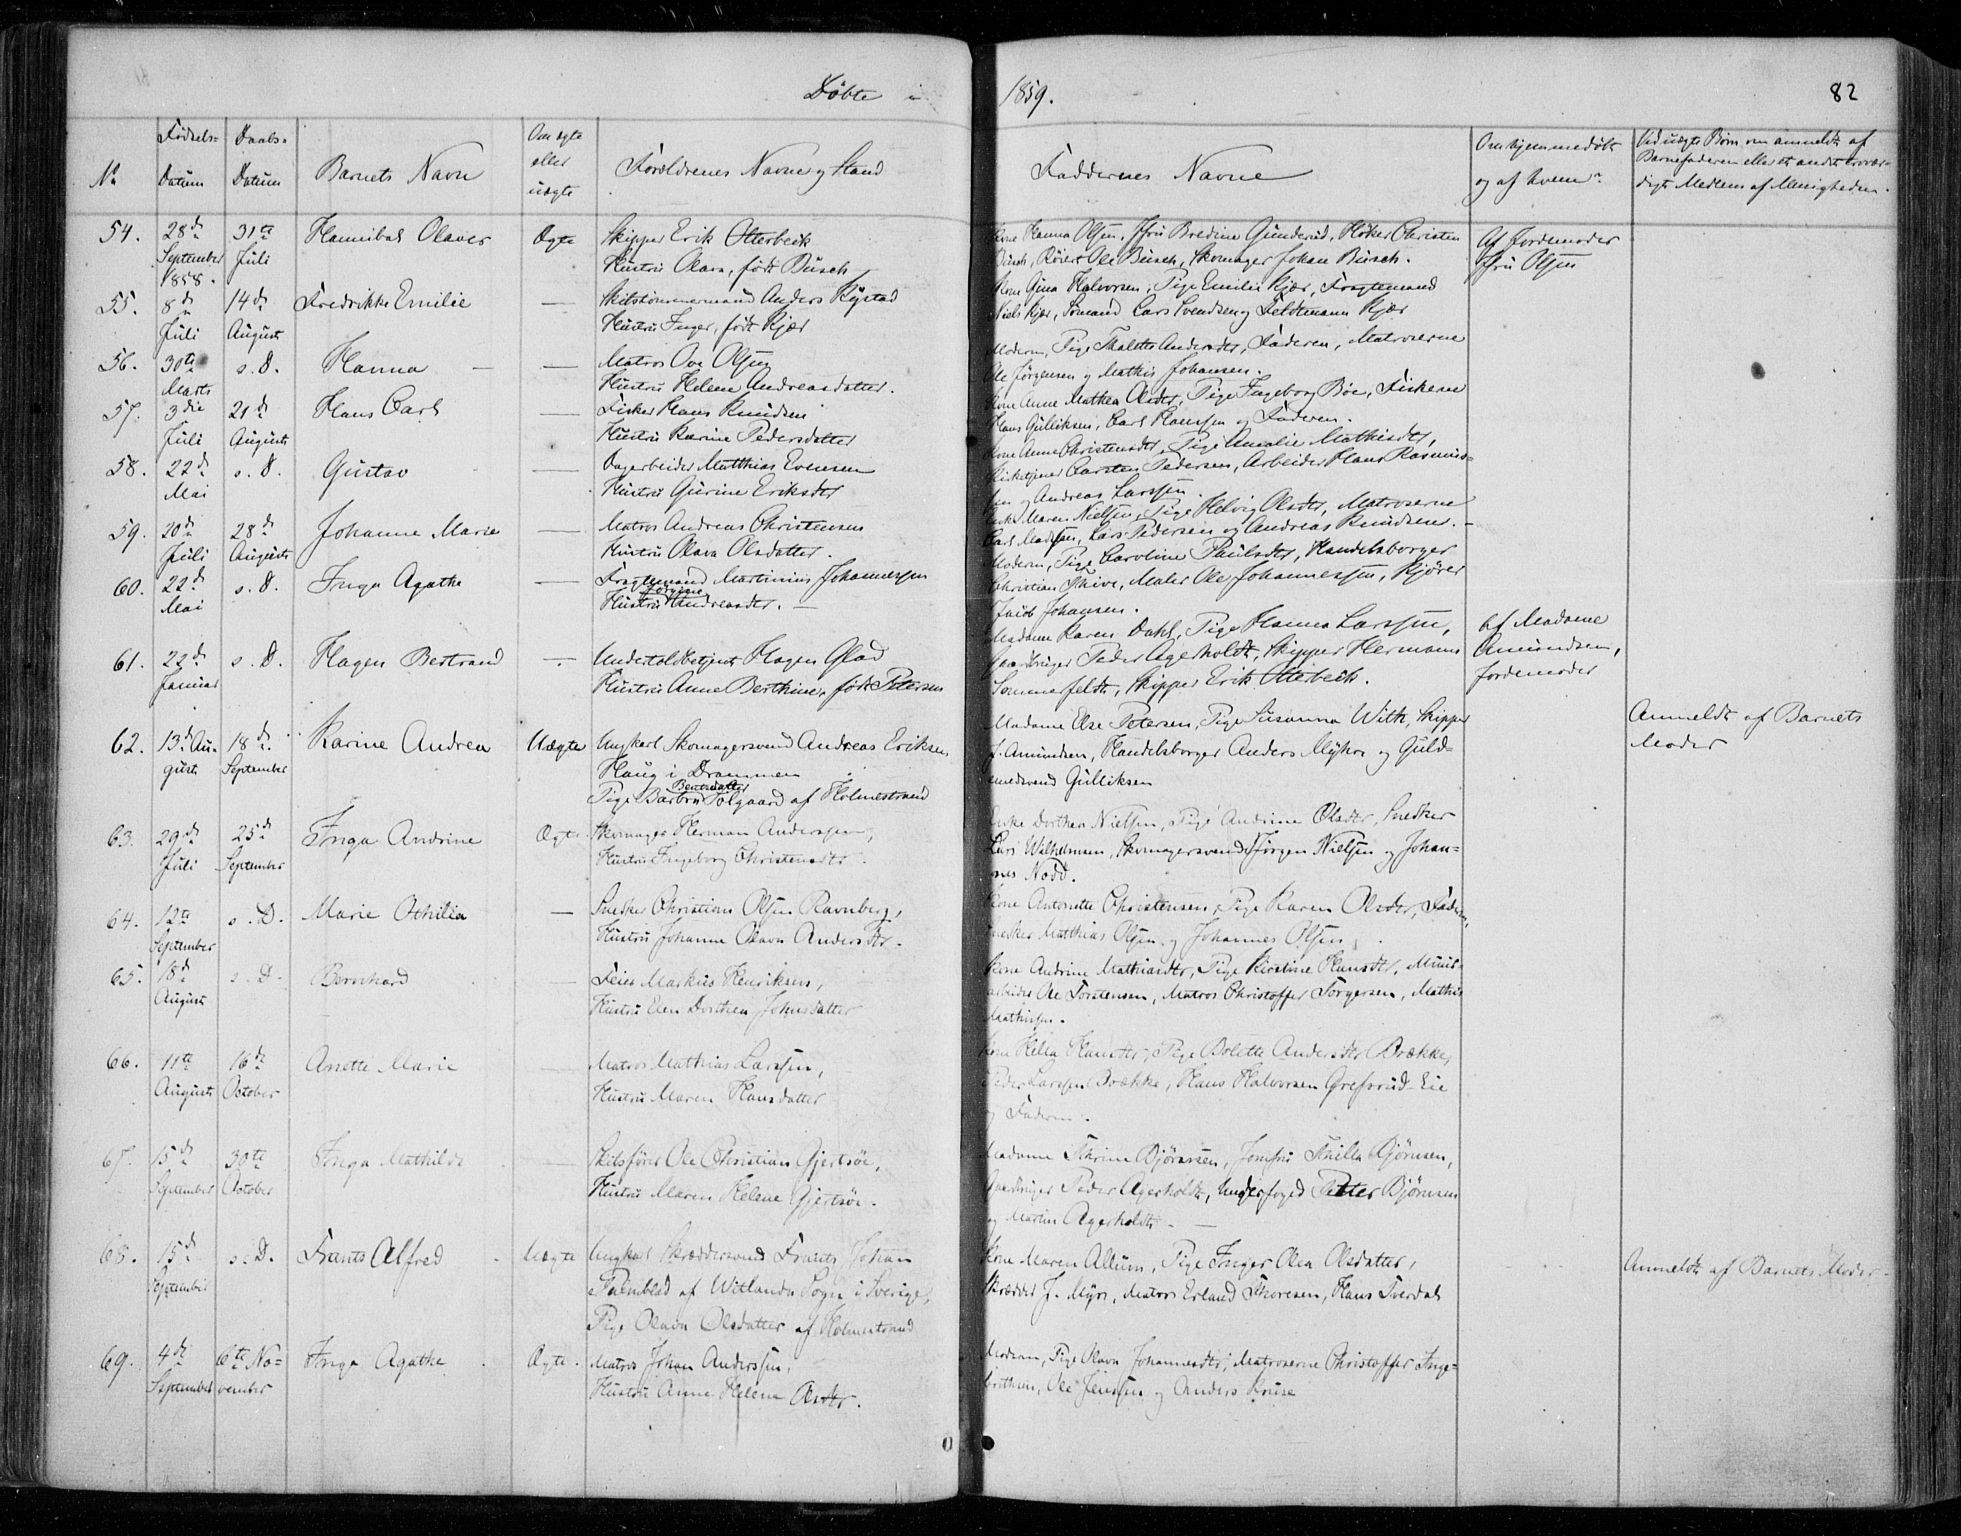 Døbte i
1859.
82
No
Fødsels-
Datum
Daabs-
Datum
Barnets Navn
Om ægte
eller
uægte
Forældrenes Navne og Stand
Faddernes Navne
Om hjemmedøbt
og af hvem?
Ved uægte Børn om anmeldt af
Barnefaderen eller et andet trovær-
digt Medlem af Menigheden.
54. 28de September 1858. 31te Juli Hannibal Olaves Ægte
Skipper Erik Otterbeck
Hustru Olava, født Busch
Kone Hanna Olsen, Jfru Bredine Gunderud, Høker Christen
Busch, Røier Ole Busch, Skomager Johan Busch.
Af Jordemoder
Jfru Olsen
55. 8de Juli 14de August Fredrikke Emilie —
Skibstømmermand Anders Røstad
Hustru Inger, født Kjær
Kone Gina Halvorsen, Pige Emilie Kjær, Fragtemand
Niels Kjær, Sømand Lars Svendsen og Feldtmann Kjær
56. 30te Marts s. D. Hanna —
Matros Ove Olsen
Hustru Helene Andreasdatter.
Moderen, Pige Thalette Andersdtr, Faderen, Matroserne
Ole Jørgensen og Mathis Johansen.
57. 3die Juli 21de August Hans Carl —
Fisker Hans Knudsen
Hustru Karine Pedersdatter
Kone Anne Mathea Olsdtr, Pige Ingeborg Bøe, Fiskerne
Hans Gulliksen, Carl Hanssen og Faderen.
58. 22de Mai s. D. Gustav —
Dagarbeider Matthias Evensen
Hustru Gurine Eriksdtr
Kone Anne Christensdtr, Pige Amalie Mathisdtr,
Kirketjener Carsten Pedersen, Arbeider Hans Rasmus-
sen og Andreas Larssen.
59. 20de Juli 28de August Johanne Marie —
Matros Andreas Christensen
Hustru Olava Olsdatter.
Enke Maren Nielsen, Pige Helvig Olsdtr, Matroserne
Carl Madsen, Lars Pedersen og Andreas Knudsen. —
60. 22de Mai s. D. Inga Agathe —
Fragtemand Martinius Johannessen
Hustru Jørgine Andreasdtr. —
Moderen, Pige Caroline Paulsdtr, Handelsborger
Christian Skive, Maler Ole Johannessen, Kjører
Jacob Johansen.
61. 22de Januar s. D. Hagen Bertrand —
Undertoldbetjent Hagen Glad
Hustru Anne Berthine, født Petersen
Madame Karen Dahl, Pige Hanna Larssen,
Gaardbruger Peder Agerholdt, Skipper Hermann
Sommerfeldt, Skipper Erik Otterbeck.
Af Madame
Amundsen,
Jordemoder
62. 13de August 18de September Karine Andrea Uægte
Ungkarl Skomagersvend Andreas Eriksen
Haug i Drammen
Pige Barbra Berntsdatter Solgaard af Holmestrand
Madame Else Petersen, Pige Susanna With, Skipper
J. Amundsen, Handelsborger Anders Myhre og Guld-
smedsvend Gulliksen
Anmeldt af Barnets
Moder
63. 29de Juli 25de September Inga Andrine Ægte
Skomager Herman Anderssen,
Hustru Ingeborg Christensdtr.
Enke Dorthea Nielsen, Pige Andrine Olsdtr, Snedker
Lars Wilhelmsen, Skomagersvend Jørgen Nielsen og Johan-
nes Nødd.
64. 12te September s. D. Marie Othilia —
Snedker Christian Olsen Ravnberg,
Hustru Johanne Olava Andersdtr.
Kone Antonette Christensen, Pige Karen Olsdtr, Faderen,
Snedker Matthias Olsen og Johannes Olsen.
65. 18de August s. D. Bernhard —
Feier Markus Henriksen,
Hustru Elen Dorthea Johnsdatter
Kone Andrine Mathiasdtr, Pige Kirstine Hansdtr, Muur-
arbeider Ole Torstensen, Matros Christoffer Torgersen, Mathis
Mathissen.
66. 11te August 16de October Anette Marie —
Matros Mathias Larssen,
Hustru Maren Hansdatter
Kone Helia Hansdtr, Pige Bolette Andersdtr Brække,
Peder Larssen Brække, Hans Halvorsen Grefsrud-Eie
og Faderen.
67. 15de September 30te October Inga Mathilde —
Skibsfører Ole Christian Gjertsøe,
Hustru Maren Helene Gjertsøe.
Madame Thrine Bjørnsen, Jomfru Thilla Bjørnsen,
Gaardbruger Peder Agerholdt, Underfoged Petter Bjørnsen
og Martin Agerholdt. —
68. 15de September s. D. Frants Alfred Uægte
Ungkarl Skræddersvend Frants Johan
Palmblad af Witlanda Sogn i Sverige,
Pige Olava Olsdatter af Holmestrand
Kone Maren Allum, Pige Inger Olea Olsdatter,
Skrædder J. Myrs, Matros Erland Thoresen, Hans Tverdal
Anmeldt af Barnets Moder.
69. 4de September 6te November Inga Agathe Ægte.
Matros Johan Anderssen,
Hustru Anne Helene Olsdtr.
Moderen, Pige Olava Johannesdtr, Matroserne Christoffer Inge-
brethsen, Ole Jenssen og Anders Kruse